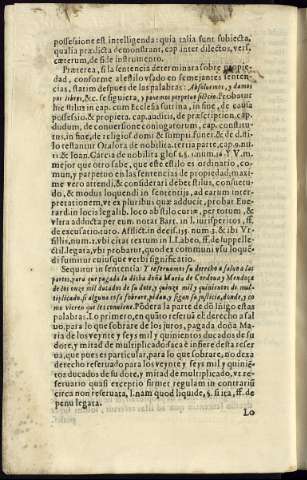 possessione est intelligenda: quia talia sunt subiecta,
qualia prædicta demonstrant, cap. inter dilectos, vers.
cæterum, de fide instrumento.
Præterea, si la sentencia determinara sobre propie-
dad, conforme al estilo vsado en semejantes senten-
cias, statim despues de las palabras: Absoluemos, y damos
por libres, &c. se siguiera, y ponemos perpetuo silencio. Probatur
hic stilus in cap. cum Ecclesia sutrina, in fine, de causa
possessio. & propieta. cap. auditis, de præscription. cap.
dudum, de conuersione coniugatorum, cap. constitu-
tus, in fine, de religios. domi.
& Ioan. Garcia de nobilita glos.
mejor que otro sabe, que este estilo es ordinario, co-
mun, y perpetuo en las sentencias de propiedad, maxi-
me vero attendi, & considerari debet stilus, consuetu-
do, & modus loquendi in sententijs, ad earum inter-
pretationem, vt ex pluribus quæ adducit, probat Eue-
rard. in locis legalib. loco ab stilo curiæ, per totum, &
vltra adducta per eum. notat Bart. in l. iurisperitos, ff.
de excusatio. tuto. Afflict. in decis.
in l. Labeo, ff. de suppelle-
ctil. legata, vbi probatur, quod ex communi vsu loqué-
di sumitur cuiusque verbi significatio.
Sequitur in sententia: Y reseruamos su derecho a saluo a las
partes, para que pagada la dicha doña Maria de Cordoua y Mendoça
de los onze mil ducados de su dote, y quinze mil y quinientos de mul-
tiplicado, si alguna cosa sobrare, pidan, y sigan su justicia, donde, y co-
mo vieren que les conuiene. Pódera la parte de dó Iñigo estas
palabras. Lo primero, en quáto reseruá el derecho a sal
uo, para lo que sobrare de los juros, pagada doña Ma-
ria de los veynte y seys mil y quinientos ducados de su
dote, y mitad de multiplicado saca è infiere desta reser
ua, que pues es particular, para lo que sobrare, no dexa
derecho reseruado para los veynte y seys mil y quinié-
tos ducados de su dote, y mitad de multiplicado, vt re-
seruatio quasi exceptio firmet regulam in contrariũ
circa non reseruata, l. nam quod liquide, §. si ita, ff. de
penu legata.
Lo